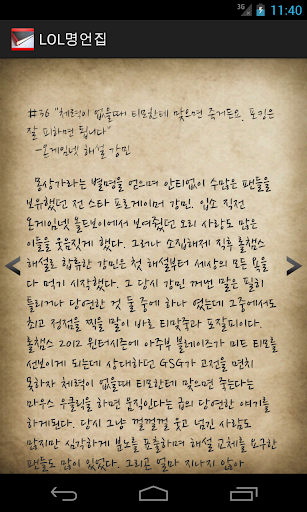 3G 11:40
LOL명언집
#36 "체력이 없을때 티모한테 맞으면 죽거든요, 포킹은
잘 피하면 됩니다"
-온게임넷 해설 강민
몽상가라는 별명을 얻으며 안티없이 수많은 팬들을
보유했던 전 스타 프로게이머 강민. 입소 직전
온게임넷 몰트보이에서 보여줬던 오리 사랑도 많은
이들을 웃음짓게 했다. 그러나 소집해제 직후 롤챔스
해설로 합류한 강민은 첫 해설부터 세상의 모든 욕을
다 먹기 시작했다. 그 당시 강민 꺼번 말은 필히
틀리거나 당연한 것 둘 중에 하나 였는데 그중에서도
최고 정점을 찍을 말이 바로 티맞죽과 포잘피이다.
롤챔스 2012 윈터시즌에 아주부 블레이즈가 미드 티모를
선보이게 되는데 상대하던 GSG가 고전을 면치
못하자 체력이 없을때 티모한테 맞으면 죽는다는
마우스 우클릭을 하면 움직인다는 급의 당연한 얘기를
하게된다. 당시 그냥 껄껄껄 웃고 넘긴 사람도
많지만 심각하게 분노를 표출하며 해설 교체를 요구한
팬들도 많이 있었다. 그리고 얼마 지나지 않아